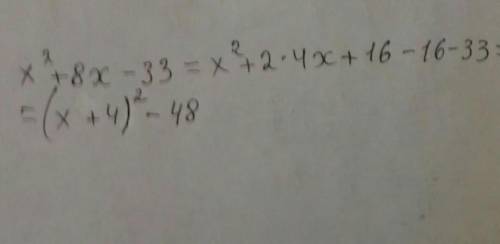 x² + 8x - 33 = x² + 2·4x + 16 - 16 - 33 =
= (x + 4)² - 48